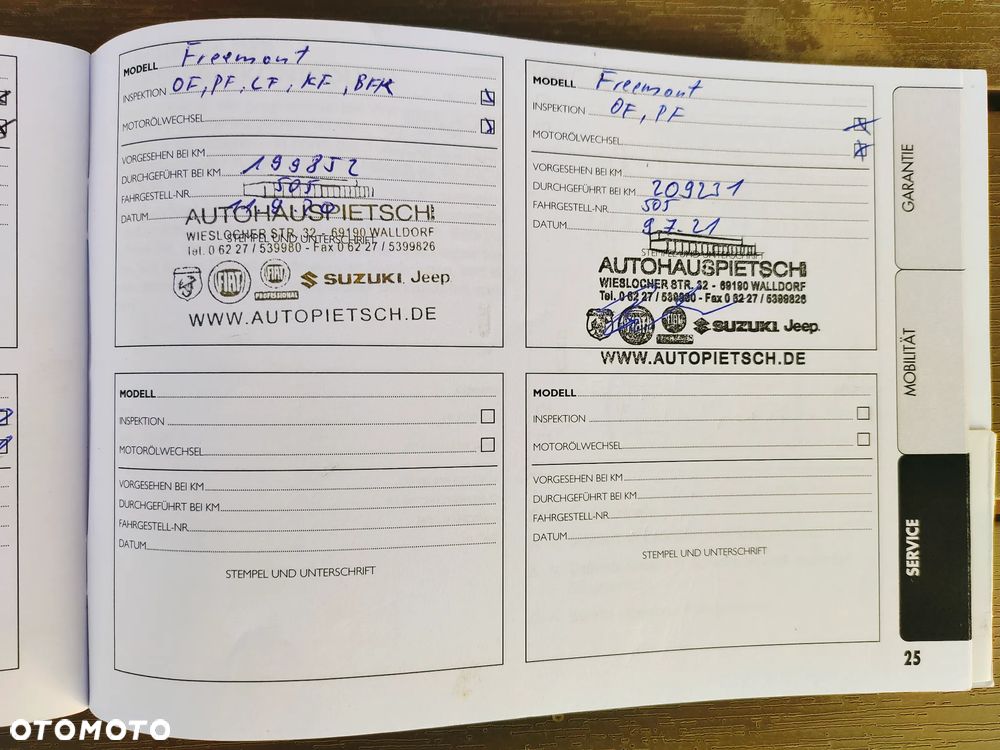 MODELL Freemont
INSPEKTION OF, PF, LF, KF, BFK
MOTORÖLWECHSEL
VORGESEHEN BEI KM
DURCHGEFÜHRT BEI KM 199852
FAHRGESTELL-NR. 505
DATUM
AUTOHAUSPIETSCH
WIESLOCHER STR. 32 - 69190 WALLDORF
STEMPEL UND UNTERSCHRIFT
Tel. 0 62 27 / 539980 - Fax 0 62 27 / 5399826
FIAT FIAT PROFESSIONAL SUZUKI Jeep
WWW.AUTOPIETSCH.DE
MODELL Freemont
INSPEKTION OF, PF
MOTORÖLWECHSEL
VORGESEHEN BEI KM
DURCHGEFÜHRT BEI KM 209231
FAHRGESTELL-NR. 505
DATUM 9.7.21
STEMPEL UND UNTERSCHRIFT
AUTOHAUSPIETSCH
WIESLOCHER STR. 32 - 69190 WALLDORF
Tel. 0 62 27 / 539980 - Fax 0 62 27 / 5399826
SUZUKI Jeep
WWW.AUTOPIETSCH.DE
MODELL
INSPEKTION
MOTORÖLWECHSEL
VORGESEHEN BEI KM
DURCHGEFÜHRT BEI KM
FAHRGESTELL-NR.
DATUM
STEMPEL UND UNTERSCHRIFT
MODELL
INSPEKTION
MOTORÖLWECHSEL
VORGESEHEN BEI KM
DURCHGEFÜHRT BEI KM
FAHRGESTELL-NR.
DATUM
STEMPEL UND UNTERSCHRIFT
GARANTIE
MOBILITÄT
SERVICE
25
OTOMOTO